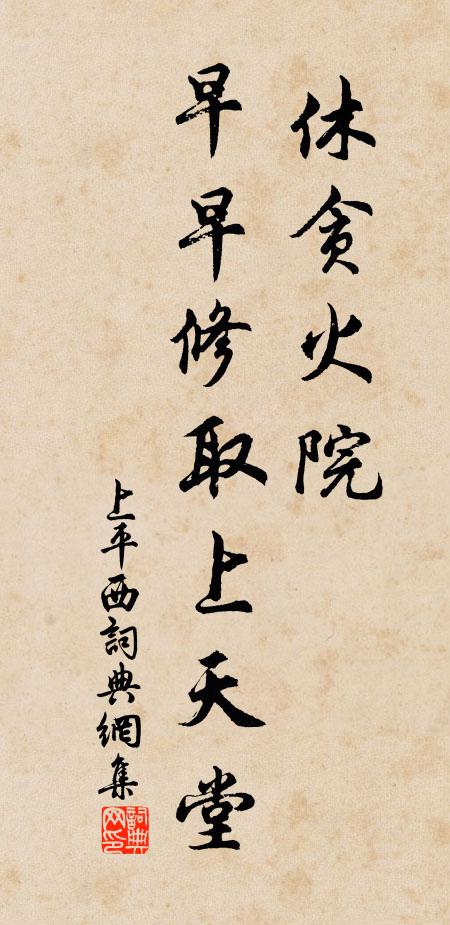 休貪火院
早早修取上天堂
上平西詞典網集
詞典网印